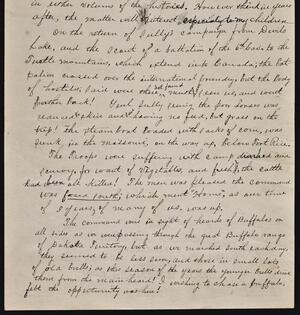 in either volumes of the histories. However think in years
after, the matter will interest, especialy to my children
On the return of Sully's campaign from Devils
Lake, and the scout of a battalion of the 6th Iowa to the
Turtle mountains, which extend into Canada; the bat
talion crossed over the international boundry, but the body
of hostiles, said were there must seen us, and went
further back! Genl Sully seeing the poor horses was
reduced skin and having no feed, but grass on the
trip! The steam boat loaded with sacks of corn, was
sunk, in the missouri, on the way up, below Fort Rice.
The troops were suffering with camp
scurvy, for want of vegetables, and fresh, the cattle
had all killed! The men was pleased the command
was faced south; which ment "Home"; as our time
of 3 years, of many of us, was up.
The command were in sight of heards of Buffalos on
all sides as we were passing through the grad Buffalo range
of Dakota Territory, but as we marched south each day,
they seemed to be less seen, and those in small lots
of old bulls; as this season of the year the younger bulls drive
them from the main heard! I wishing to chase a buffalo,
felt the oppertunity was here!